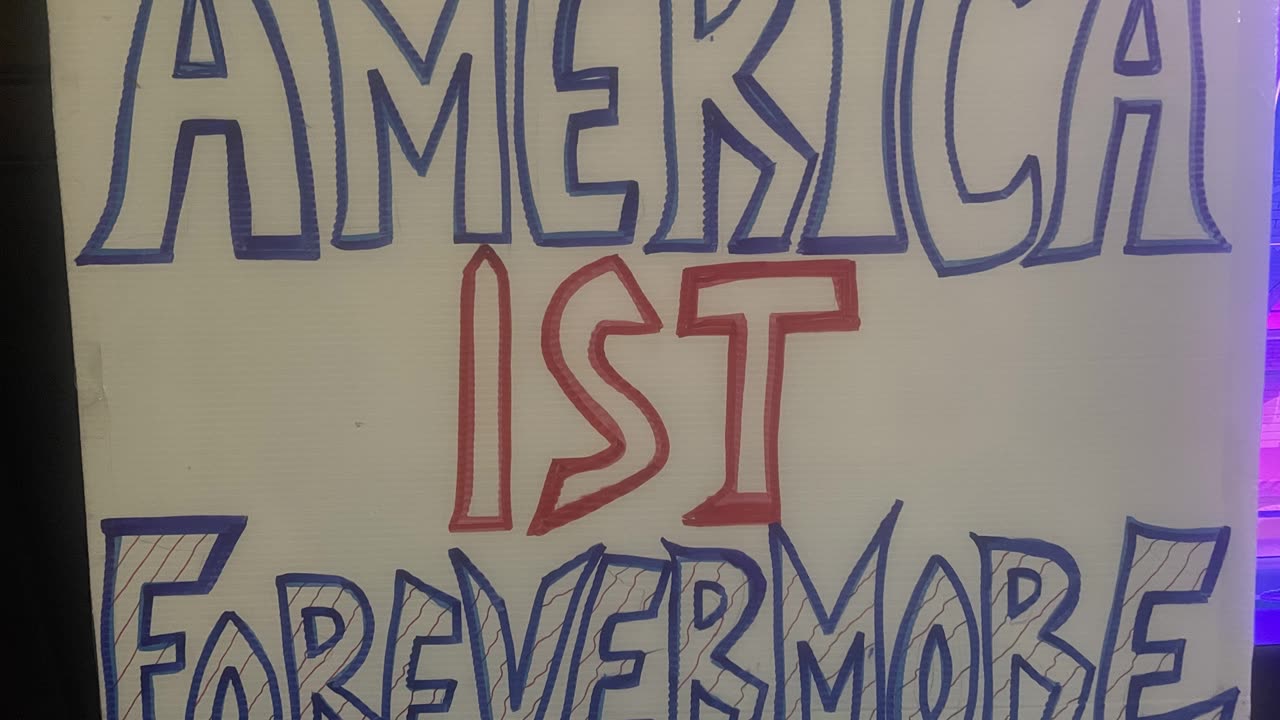 AMERICA
IST
FOREVERMORE